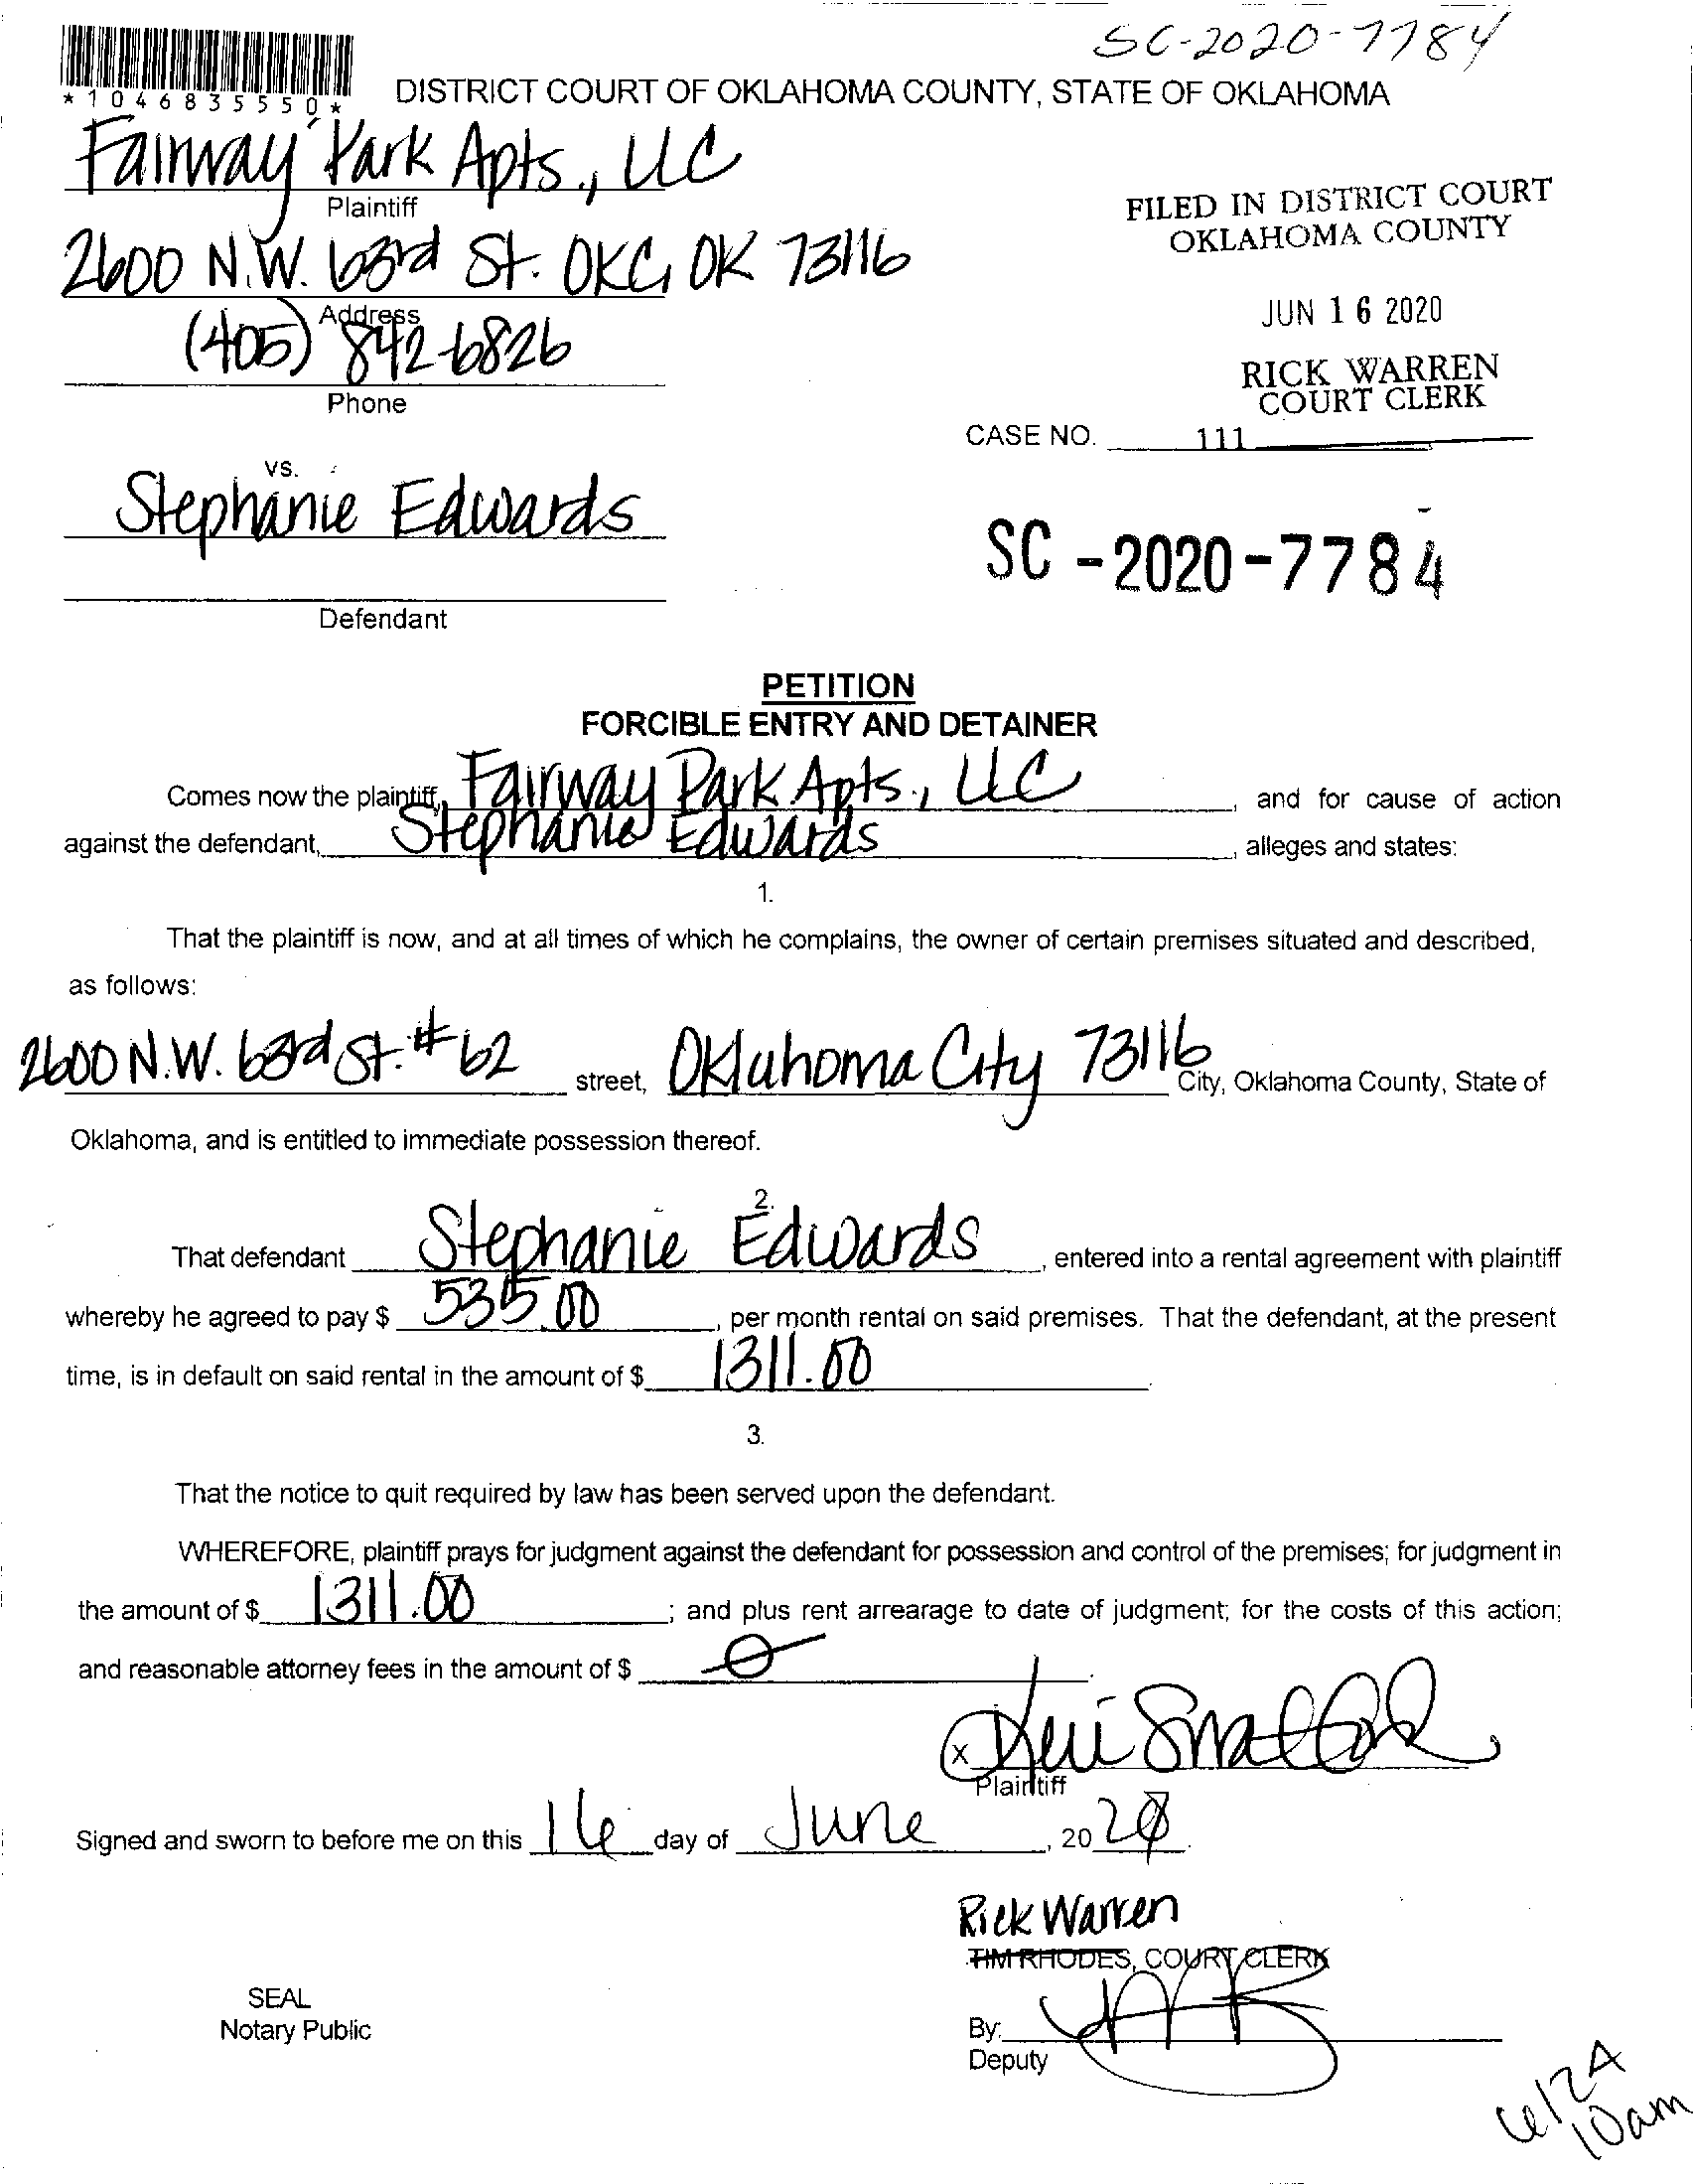 SC-2020-7784
*1046835550*
DISTRICT COURT OF OKLAHOMA COUNTY, STATE OF OKLAHOMA
Fairway Park Apts., LLC
Plaintiff
FILED IN DISTRICT COURT
OKLAHOMA COUNTY
2600 N.W. 63rd St. OKC, OK 73116
Address
JUN 16 2020
(405) 842-6826
Phone
RICK WARREN
COURT CLERK
CASE NO. 111
vs.
Stephanie Edwards
SC-2020-7784
Defendant
PETITION
FORCIBLE ENTRY AND DETAINER
Comes now the plaintiff, Fairway Park Apts., LLC, and for cause of action
against the defendant, Stephanie Edwards, alleges and states:
1.
That the plaintiff is now, and at all times of which he complains, the owner of certain premises situated and described,
as follows:
2600 N.W. 63rd St. #62 street, Oklahoma City 73116 City, Oklahoma County, State of
Oklahoma, and is entitled to immediate possession thereof.
2.
That defendant Stephanie Edwards, entered into a rental agreement with plaintiff
whereby he agreed to pay $ 535.00, per month rental on said premises. That the defendant, at the present
time, is in default on said rental in the amount of $ 1311.00.
3.
That the notice to quit required by law has been served upon the defendant.
WHEREFORE, plaintiff prays for judgment against the defendant for possession and control of the premises; for judgment in
the amount of $ 1311.00; and plus rent arrearage to date of judgment; for the costs of this action;
and reasonable attorney fees in the amount of $ 0.
x Keri
Plaintiff
Signed and sworn to before me on this 16 day of June, 20 20.
Rick Warren
TIM RHODES, COURT CLERK
SEAL
Notary Public
By:
Deputy
6/24
10am